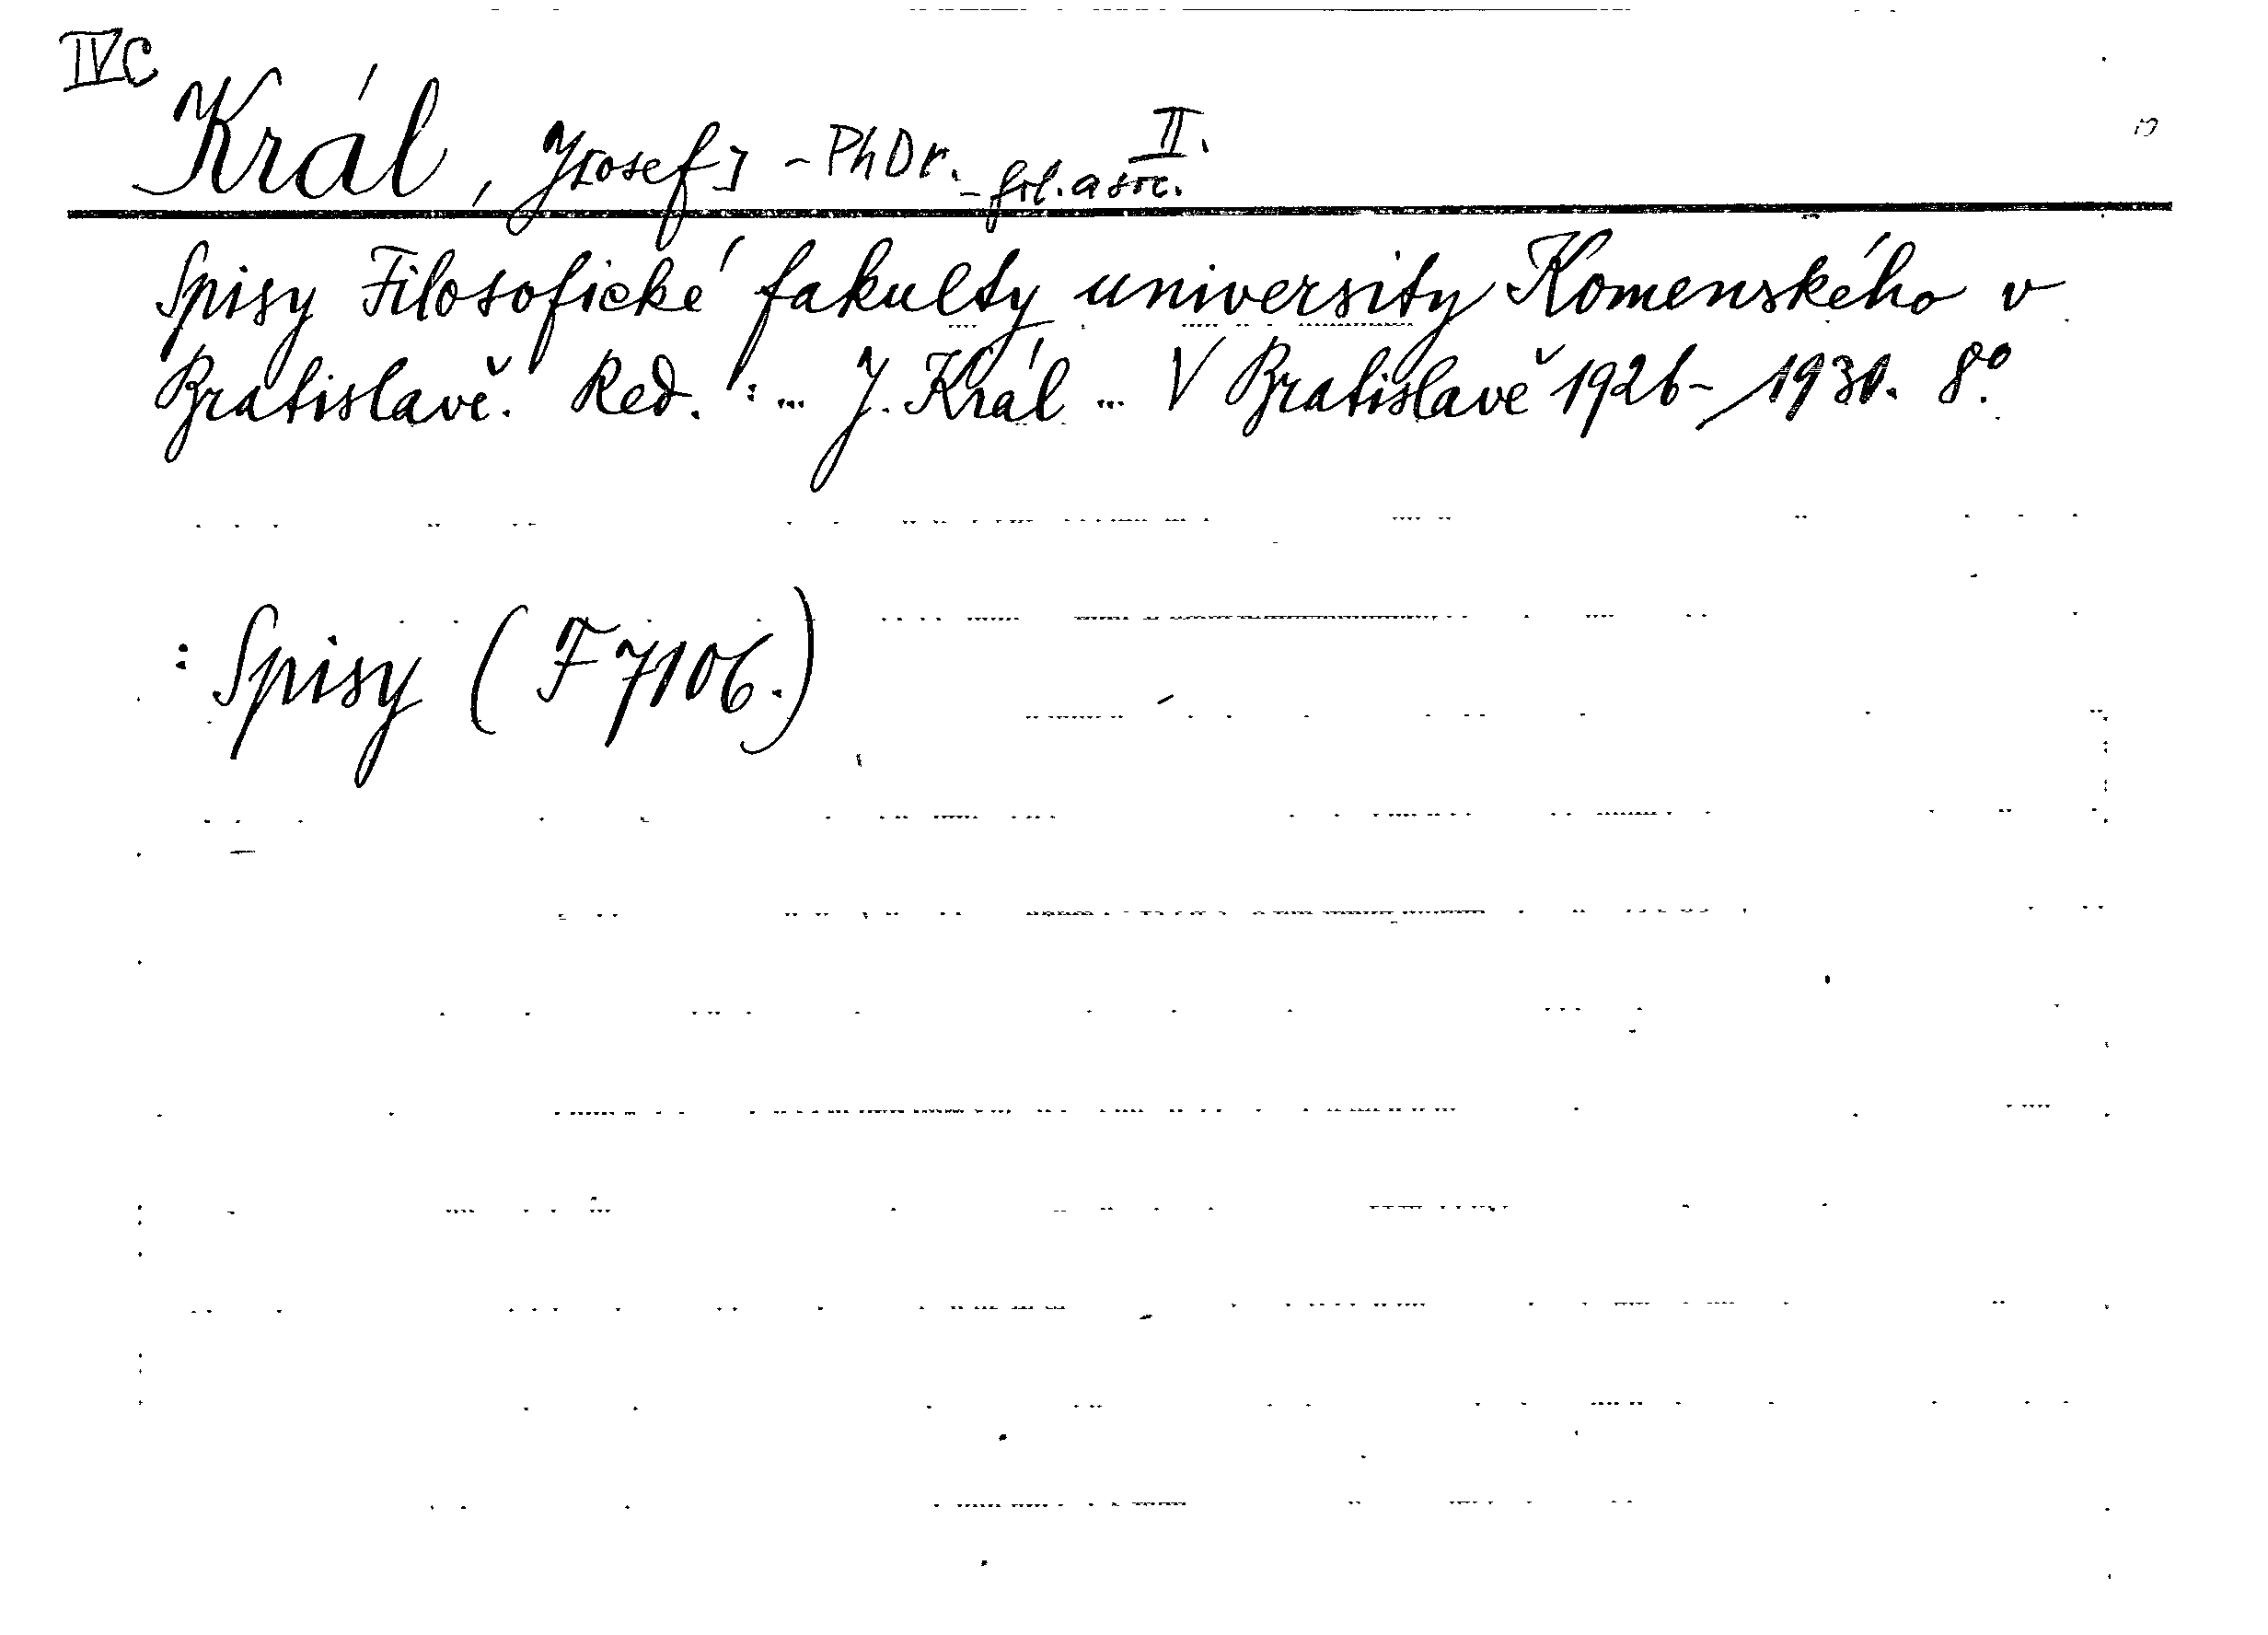 IVC
Král, J[osef] - PhDr. - fil. a soc. II.
Spisy Filosofické fakulty university Komenského v
Bratislavě. Red. : ... J. Král ... V Bratislavě 1926-1930. 8°.
: Spisy (F 7106.)